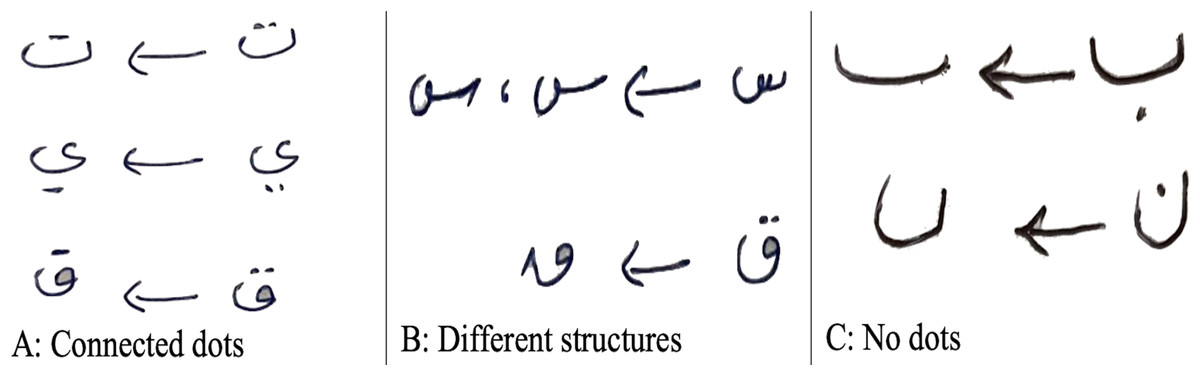 ت ← ت
ي ← ي
ق ← ق
A: Connected dots
س ← س ، س
ق ← ٯ
B: Different structures
ب ← ٮ
ن ← ں
C: No dots